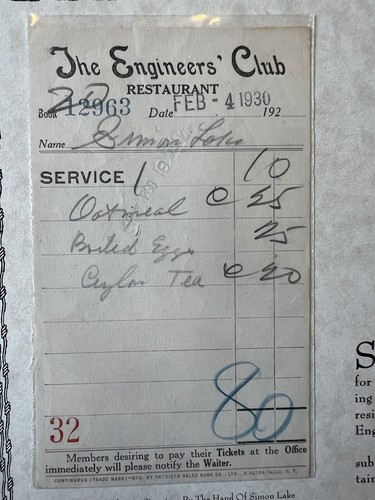 The Engineers' Club
RESTAURANT
Book 20 12963 Date FEB - 4 1930 192
Name Simon Lake
SERVICE 1 10
Oatmeal @ 25
Boiled Eggs 25
Ceylon Tea @ 20
80
32
Members desiring to pay their Tickets at the Office
immediately will please notify the Waiter.
CONTINUOUS (TRADE MARK) MFG. BY AMERICAN SALES BOOK CO., LTD. N. Y.
S
for
ing
resi
Eng
sub
tain
By The Hand Of Simon Lake